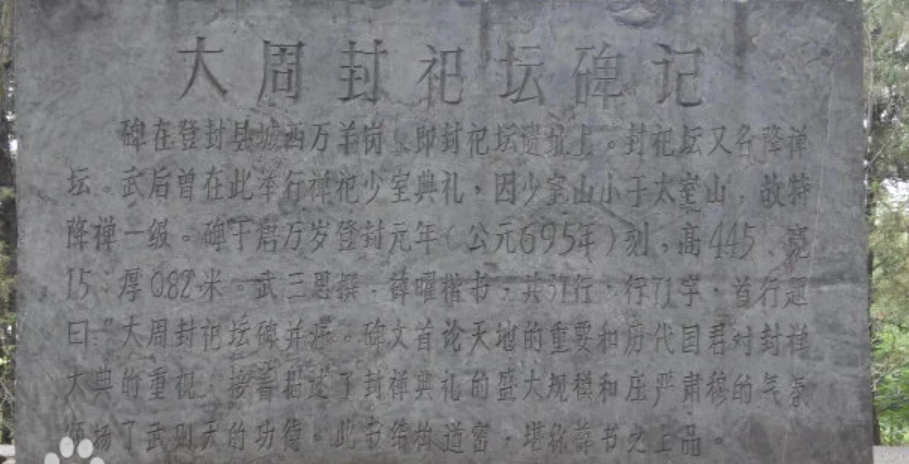 大周封祀坛碑记
碑在登封县城西万羊岗,即封祀坛遗址上。封祀坛又名降禅
坛。武后曾在此举行禅祀少室典礼,因少室山小于太室山,故特
降禅一级。碑于唐万岁登封元年(公元695年)刻,高4.45、宽
1.5、厚0.82米。武三思撰,薛曜楷书,共37行,行71字,首行题
曰:“大周封祀坛碑并序。碑文首论天地的重要和历代国君对封禅
大典的重视,接着描述了封禅典礼的盛大规模和庄严肃穆的气氛
颂扬了武则天的功德。此书结构遒密,堪称薛书之上品。